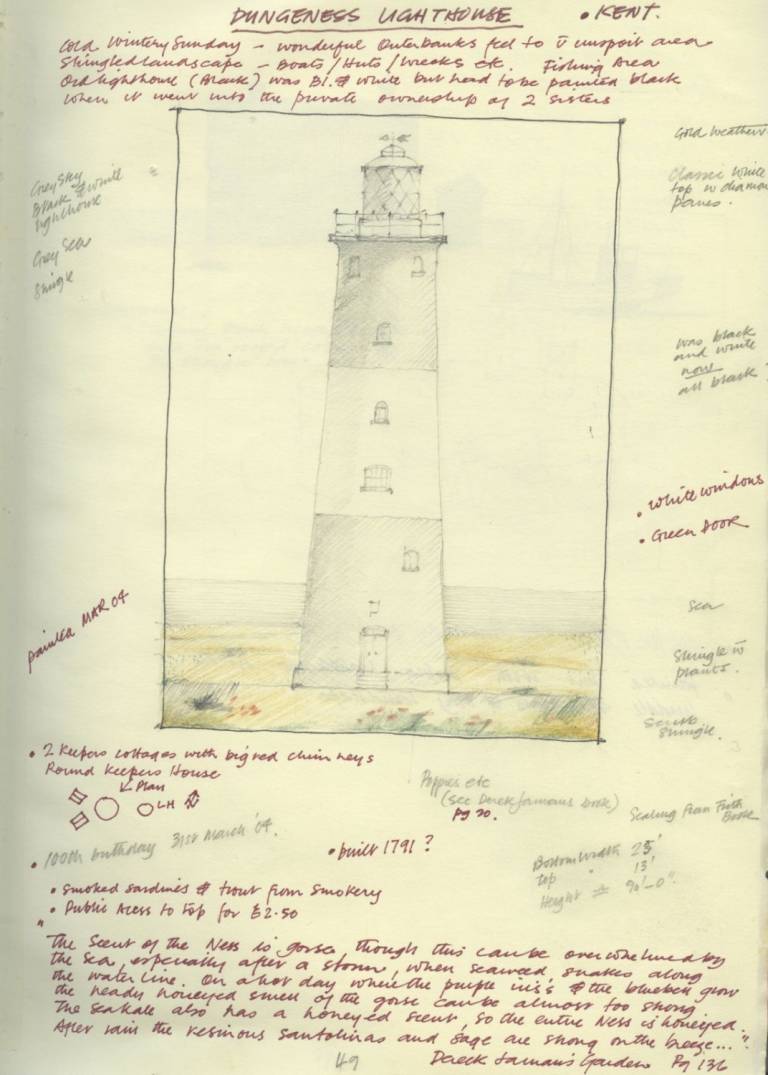 DUNGENESS LIGHTHOUSE • KENT.
Cold Wintery Sunday – wonderful Outerbanks feel to v̄ unspoit area
Shingled landscape – Boats/Huts/Wrecks etc. Fishing Area
Old lighthouse (Black) was Bl. & white but had to be painted black
when it went into the private ownership of 2 sisters
Grey Sky
Black & white
lighthouse
Grey Sea
Shingle
Cold Weather
Classic White
top w diamon
panes.
was black
and white
now
all black
• White windows
• Green Door
Sea
Shingle w̄
plants.
Scrub
Shingle.
painted MAR 04
• 2 Keepers cottages with big red chimneys
Round Keepers House
Plan
LH
Poppies etc
(see Derek Jarmans book)
Pg 70.
Scaling From Book
• 100th birthday 31st March '04.
• built 1791 ?
Bottom Width 25'
top " 13'
Height ± 90'-0".
• Smoked sardines & trout from Smokery
• Public Acess to top for £2.50
"The Scent of the Ness is gorse, though this can be overwhelmed by
the sea, especially after a storm, when seaweed snakes along
the waterline. On a hot day when the purple iris's & the bluebell grow
the heady honeyed smell of the gorse can be almost too strong
The seakale also has a honeyed scent, so the entire Ness is honeyed.
After rain the resinous santolinas and sage are strong on the breeze..."
49
Dereck Jarman's Garden Pg 136